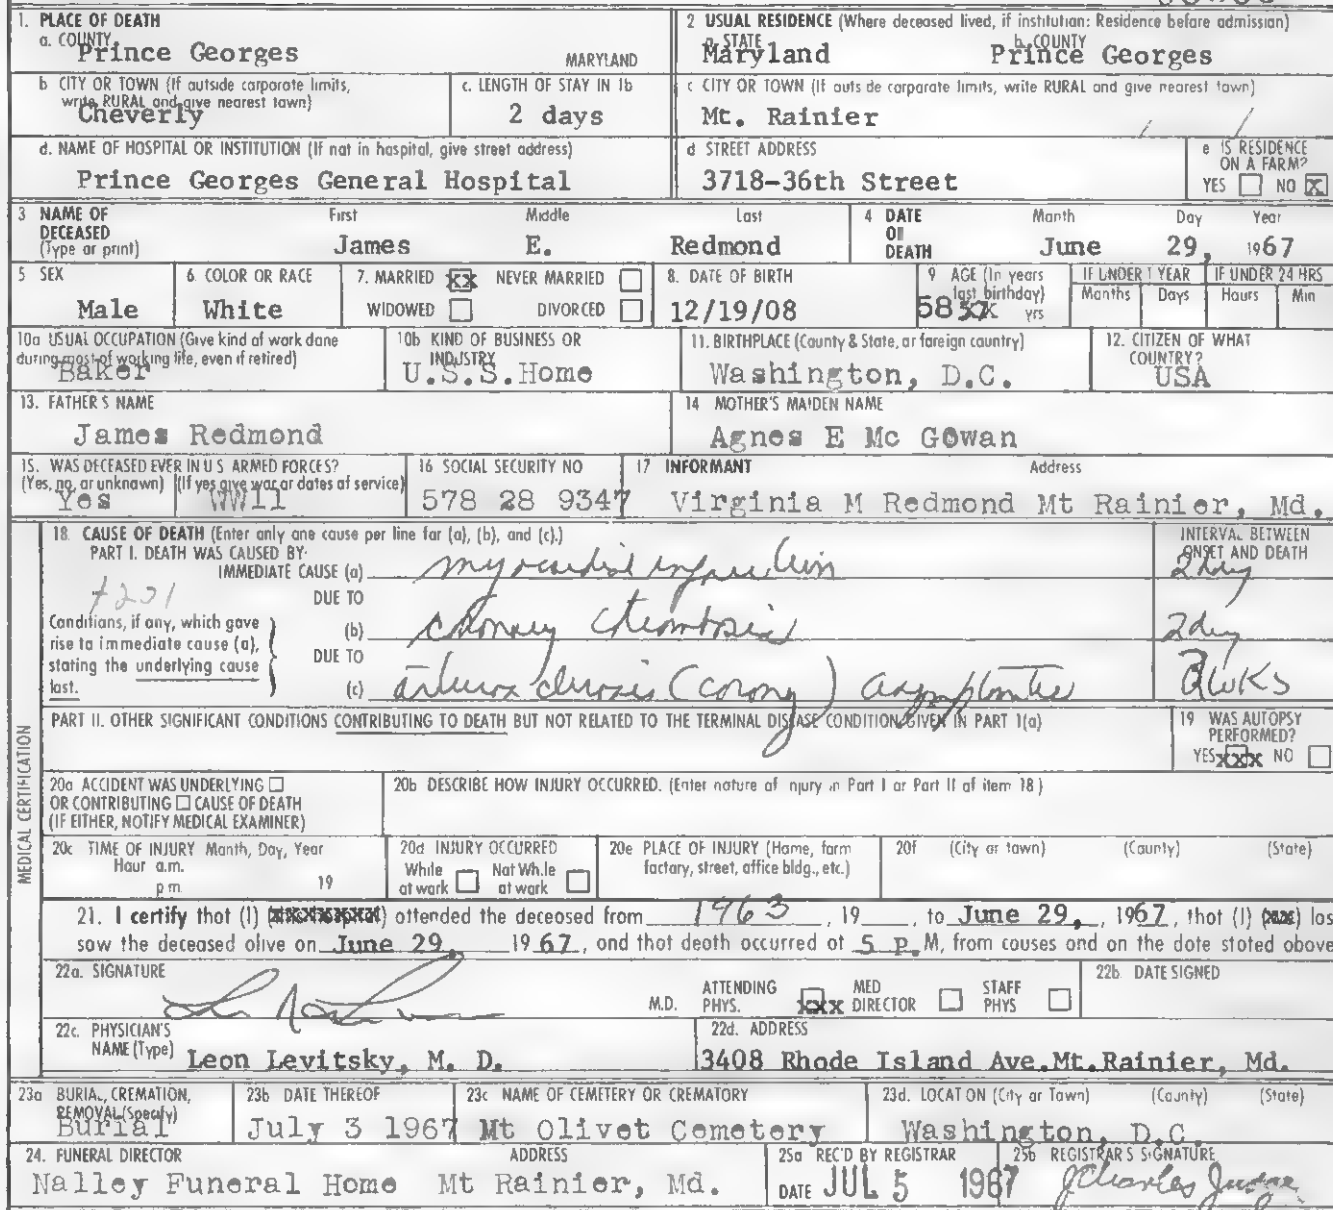 1. PLACE OF DEATH
a. COUNTY Prince Georges MARYLAND
2 USUAL RESIDENCE (Where deceased lived, if institution: Residence before admission)
a. STATE Maryland b. COUNTY Prince Georges
b CITY OR TOWN (If outside corporate limits, write RURAL and give nearest town)
Cheverly
c. LENGTH OF STAY IN 1b
2 days
c CITY OR TOWN (If outs de corporate limits, write RURAL and give nearest town)
Mt. Rainier
d. NAME OF HOSPITAL OR INSTITUTION (If not in hospital, give street address)
Prince Georges General Hospital
d STREET ADDRESS
3718-36th Street
e IS RESIDENCE ON A FARM?
YES NO X
3 NAME OF DECEASED (Type or print)
First Middle Last
James E. Redmond
4 DATE OF DEATH
Month Day Year
June 29, 1967
5 SEX
Male
6. COLOR OR RACE
White
7. MARRIED xx NEVER MARRIED
WIDOWED DIVORCED
8. DATE OF BIRTH
12/19/08
9 AGE (In years last birthday)
58 yrs
IF UNDER 1 YEAR
Months Days
IF UNDER 24 HRS
Hours Min
10a USUAL OCCUPATION (Give kind of work done during most of working life, even if retired)
Baker
10b KIND OF BUSINESS OR INDUSTRY
U.S.S.Home
11. BIRTHPLACE (County & State, or foreign country)
Washington, D.C.
12. CITIZEN OF WHAT COUNTRY?
USA
13. FATHER'S NAME
James Redmond
14 MOTHER'S MAIDEN NAME
Agnes E Mc GOwan
15. WAS DECEASED EVER IN U S ARMED FORCES?
(Yes, no, or unknown) (If yes give war or dates of service)
Yes WW11
16 SOCIAL SECURITY NO
578 28 9347
17 INFORMANT Address
Virginia M Redmond Mt Rainier, Md.
18. CAUSE OF DEATH (Enter only one cause per line for (a), (b), and (c).)
PART I. DEATH WAS CAUSED BY:
IMMEDIATE CAUSE (a) myocardial infarction
INTERVAL BETWEEN ONSET AND DEATH
2 day
4201
DUE TO
Conditions, if any, which gave rise to immediate cause (a), stating the underlying cause last.
(b) coronary thrombosis 2 day
DUE TO
(c) arteriosclerosis (coronary) asymptomatic wks
PART II. OTHER SIGNIFICANT CONDITIONS CONTRIBUTING TO DEATH BUT NOT RELATED TO THE TERMINAL DISEASE CONDITION GIVEN IN PART I(a)
19 WAS AUTOPSY PERFORMED?
YES xxx NO
MEDICAL CERTIFICATION
20a ACCIDENT WAS UNDERLYING
OR CONTRIBUTING CAUSE OF DEATH
(IF EITHER, NOTIFY MEDICAL EXAMINER)
20b DESCRIBE HOW INJURY OCCURRED. (Enter nature of njury in Part I or Part II of item 18)
20c TIME OF INJURY Month, Day, Year
Hour a.m.
p m 19
20d INJURY OCCURRED
While at work Not Wh.le at work
20e PLACE OF INJURY (Home, farm factory, street, office bldg., etc.)
20f (City or town) (County) (State)
21. I certify that (I) attended the deceased from 1963, 19 , to June 29, , 1967, that (I) las
saw the deceased alive on June 29, 1967, and that death occurred at 5 p. M, from causes and on the date stated above
22a. SIGNATURE
M.D. ATTENDING PHYS. xxx MED DIRECTOR STAFF PHYS
22b DATE SIGNED
22c. PHYSICIAN'S NAME (Type)
Leon Levitsky, M. D.
22d. ADDRESS
3408 Rhode Island Ave.Mt.Rainier, Md.
23a BURIAL, CREMATION, REMOVAL (Specify)
Burial
23b DATE THEREOF
July 3 1967
23c NAME OF CEMETERY OR CREMATORY
Mt Olivet Cemetery
23d. LOCAT ON (City or Town) (County) (State)
Washington, D.C.
24. FUNERAL DIRECTOR ADDRESS
Nalley Funeral Home Mt Rainier, Md.
25a REC'D BY REGISTRAR
DATE JUL 5 1967
25b REGISTRAR'S SIGNATURE
J Charles Judge